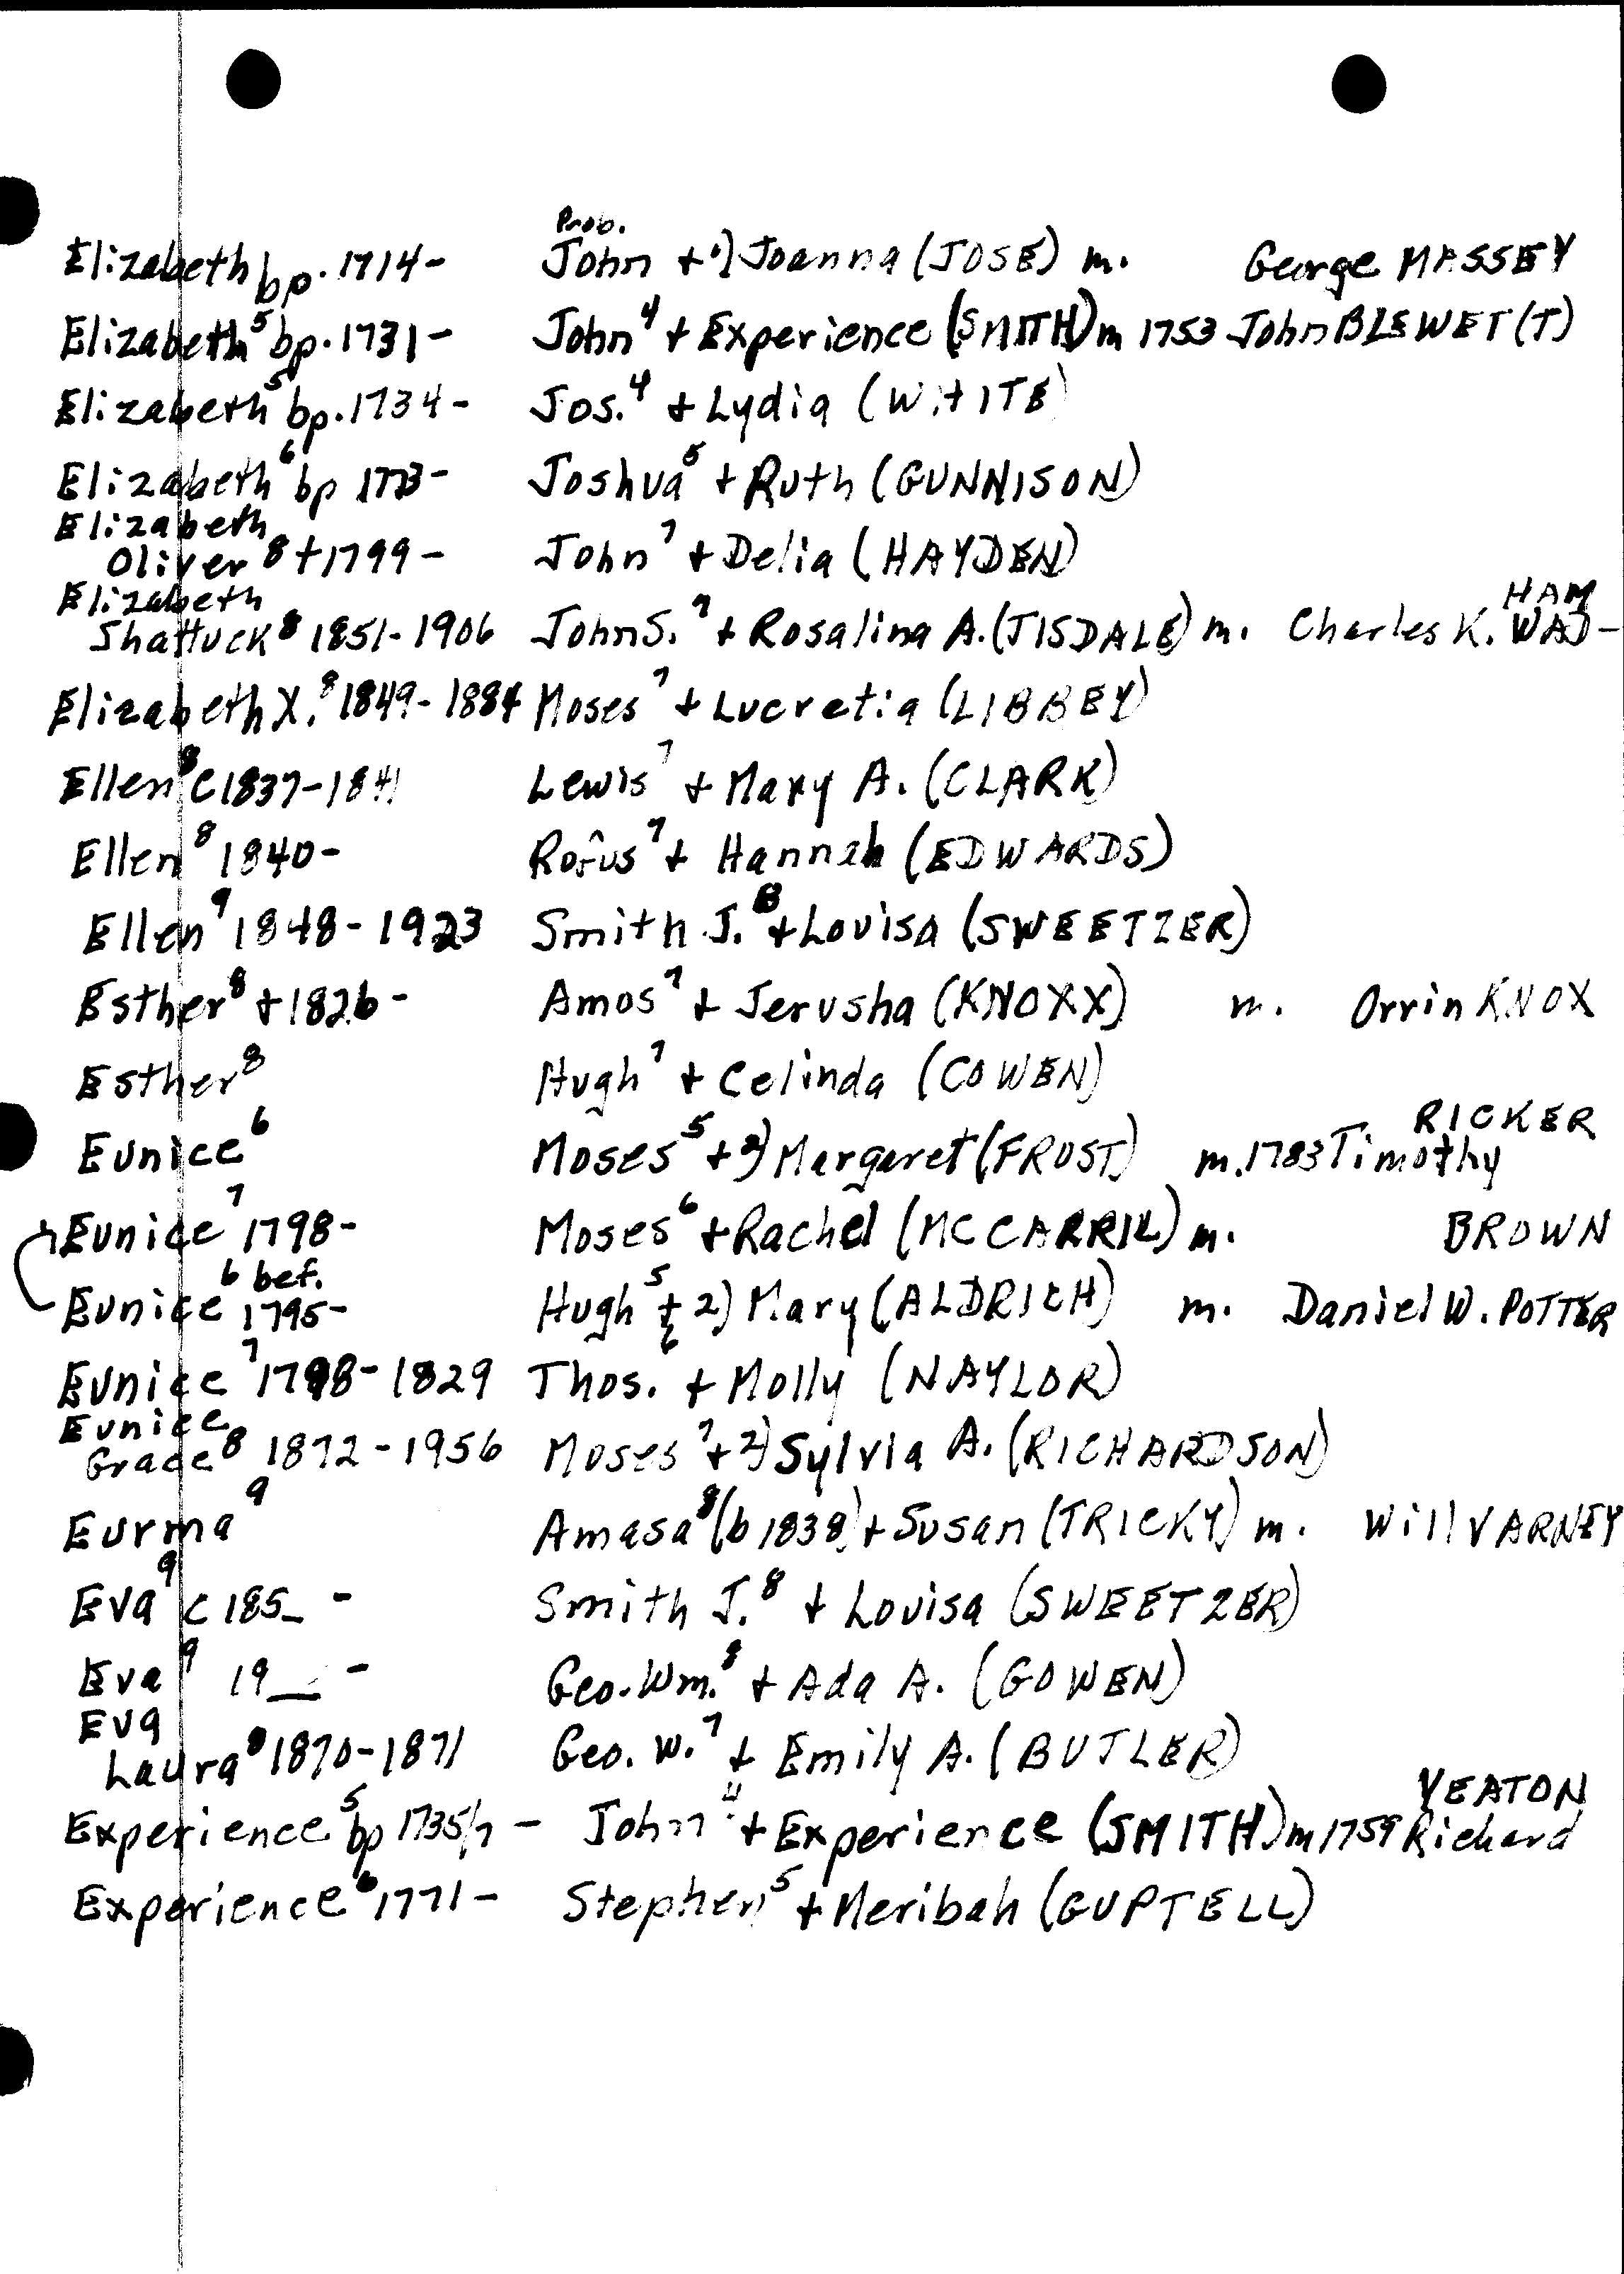 Prob.
Elizabeth bp. 1714- John + 1) Joanna (JOSE) m. George MASSEY
Elizabeth⁵ bp. 1731- John⁴ + Experience (SMITH) m 1753 John BLEWET(T)
Elizabeth⁵ bp. 1734- Jos.⁴ + Lydia (WHITE)
Elizabeth⁶ bp 1773- Joshua⁵ + Ruth (GUNNISON)
Elizabeth
Oliver⁸ +1799- John⁷ + Delia (HAYDEN)
Elizabeth HAM
Shattuck⁸ 1851-1906 John S.⁷ + Rosalina A. (TISDALE) m. Charles K. WAD-
Elizabeth X.⁸ 1849-1884 Moses⁷ + Lucretia (LIBBEY)
Ellen⁸ c1837-1841 Lewis⁷ + Mary A. (CLARK)
Ellen⁸ 1840- Rofus⁷ + Hannah (EDWARDS)
Ellen⁹ 1848-1923 Smith J.⁸ + Lovisa (SWEETZER)
Esther⁸ +1826- Amos⁷ + Jerusha (KNOXX) m. Orrin KNOX
Esther⁸ Hugh⁷ + Celinda (COWEN)
RICKER
Eunice⁶ Moses⁵ + 2) Margaret (FROST) m. 1783 Timothy
Eunice⁷ 1798- Moses⁶ + Rachel (MCCARRIL) m. BROWN
6 bef.
Eunice 1795- Hugh⁵ + 2) Mary (ALDRICH) m. Daniel W. POTTER
Eunice⁷ 1798-1829 Thos.⁶ + Molly (NAYLOR)
Eunice
Grace⁸ 1872-1956 Moses⁷ + 2) Sylvia A. (RICHARDSON)
Eurma⁹ Amasa⁸ (b 1838) + Susan (TRICKY) m. Will VARNEY
Eva⁹ c 185_ - Smith J.⁸ + Lovisa (SWEETZER)
Eva⁹ 19__ - Geo. Wm.⁸ + Ada A. (GOWEN)
Eva
Laura⁸ 1870-1871 Geo. W.⁷ + Emily A. (BUTLER)
YEATON
Experience⁵ bp 1735/7 - John⁴ + Experience (SMITH) m 1759 Richard
Experience⁶ 1771- Stephen⁵ + Meribah (GUPTELL)